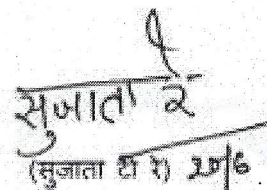 सुजाता रे
(सुजाता टी रे)